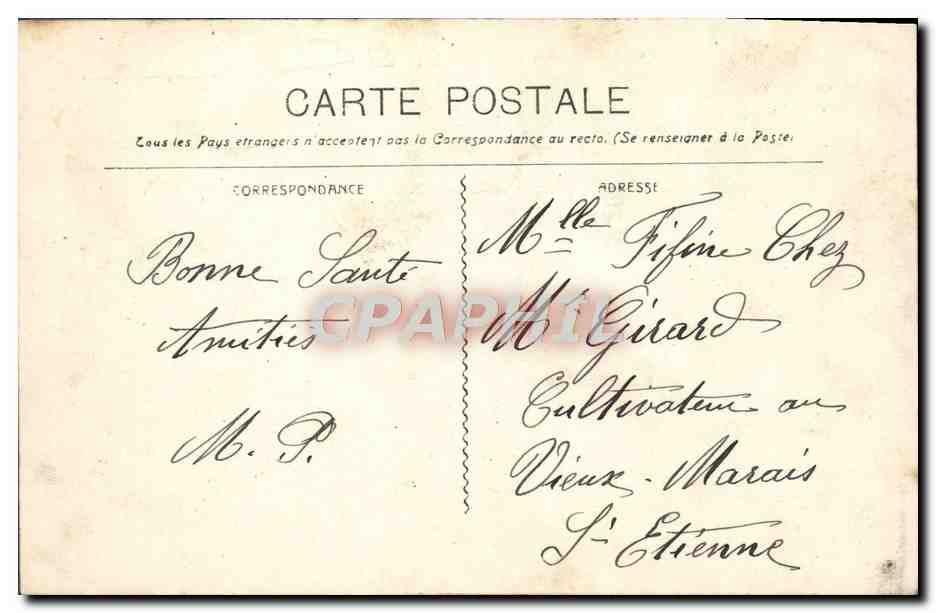 CARTE POSTALE
Tous les Pays etrangers n'acceptent pas la Correspondance au recto. (Se renseigner à la Poste)
CORRESPONDANCE
Bonne Santé
Amitiés
M. P.
ADRESSE
Mlle Fifine Chez
Mr Girard
Cultivateur au
Vieux-Marais
St Etienne
CPAPHIL